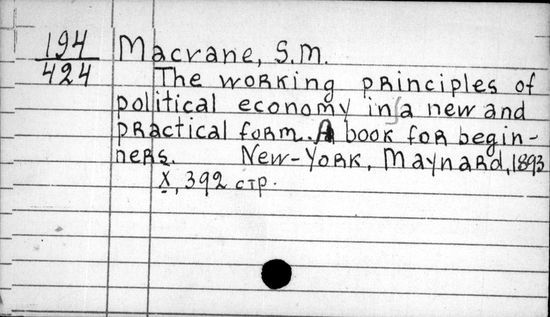 194
424
Macvane, S.M.
The working principles of
political economy in a new and
practical form. A book for begin-
ners. New-York, Maynard, 1893
X, 392 стр.